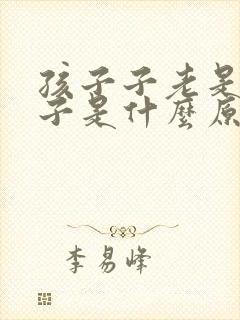 孩子子老是
子是什麼原
李易峰